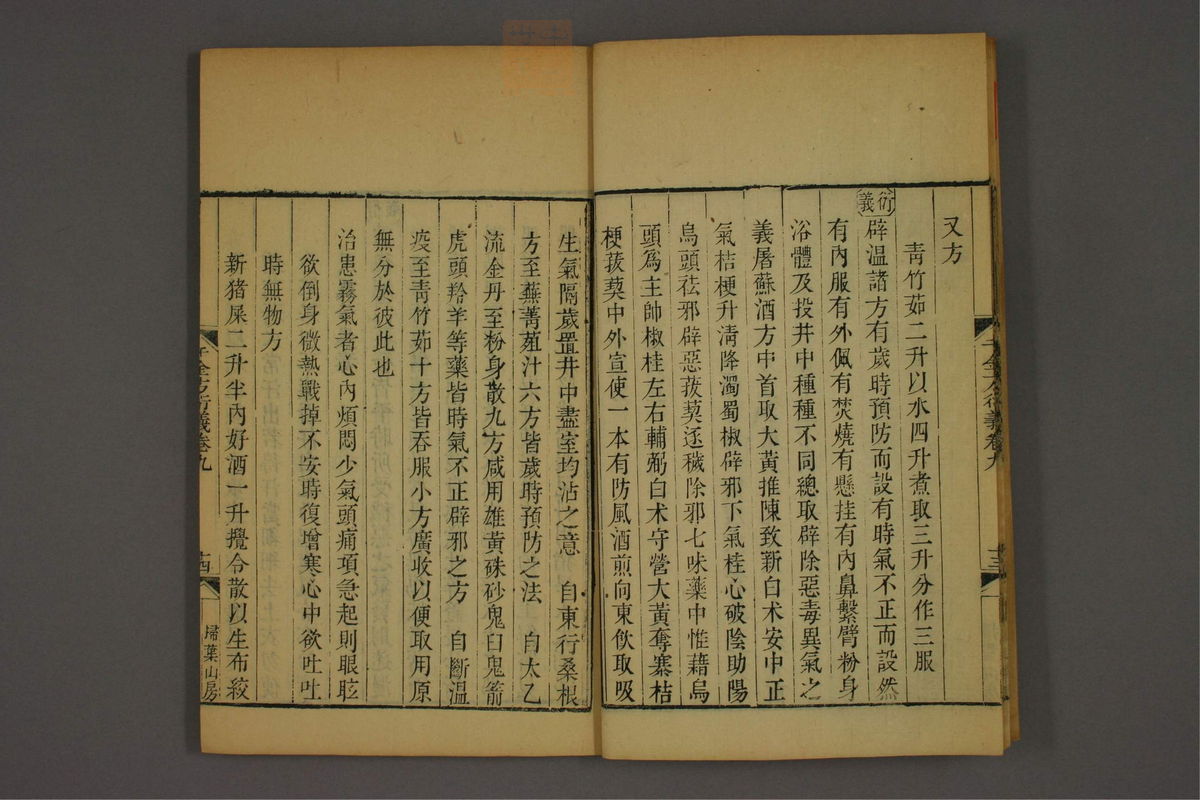 又方
靑竹茹二升以水四升煮取三升分作三服
衍義
辟温諸方有歲時預防而設有時氣不正而設然
有內服有外佩有焚燒有懸挂有內鼻繫臂粉身
浴體及投井中種種不同總取辟除惡毒異氣之
義屠蘇酒方中首取大黃推陳致新白术安中正
氣桔梗升淸降濁蜀椒辟邪下氣桂心破陰助陽
烏頭祛邪辟惡菝葜逐穢除邪七味藥中惟藉烏
頭爲主帥椒桂左右輔弼白术守營大黃奪寨桔
梗菝葜中外宣使一本有防風酒煎向東飮取吸
千金方衍義卷九
十三
生氣隔歲置井中盡室均沾之意 自東行桑根
方至蕪菁葅汁六方皆歲時預防之法 自太乙
流金丹至粉身散九方咸用雄黃硃砂鬼臼鬼箭
虎頭羚羊等藥皆時氣不正辟邪之方 自斷温
疫至靑竹茹十方皆吞服小方廣收以便取用原
無分於彼此也
治患霧氣者心內煩悶少氣頭痛項急起則眼眩
欲倒身微熱戰掉不安時復增寒心中欲吐吐
時無物方
新猪屎二升半內好酒一升攪令散以生布絞
千金方衍義卷九
十四
掃葉山房